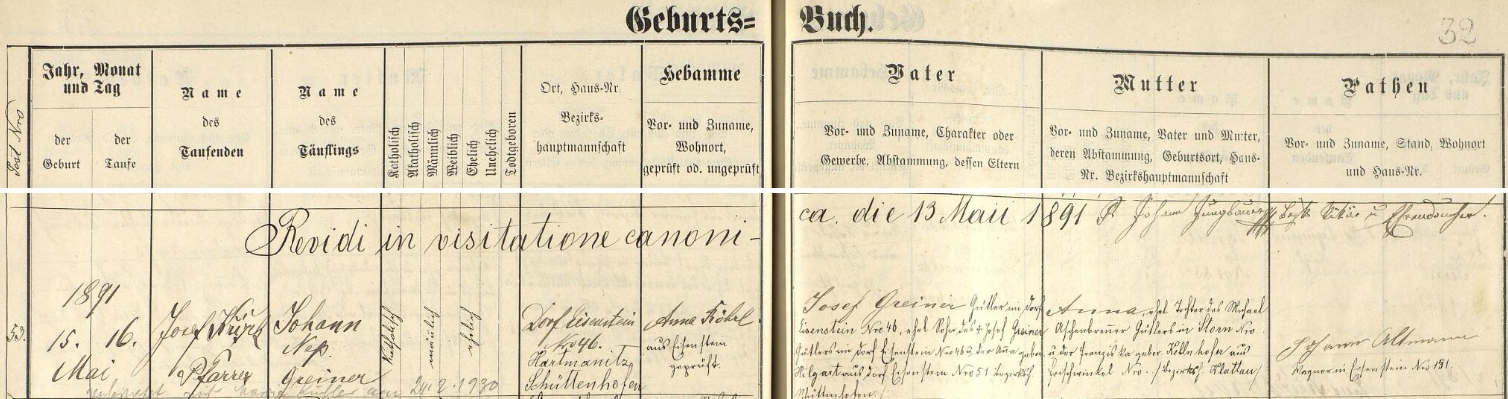 Geburts=
Buch.
32
Jahr, Monat
und Tag
der
Geburt
der
Taufe
Name
des
Taufenden
Name
des
Täuflings
Katholisch
Akatholisch
Männlich
Weiblich
Ehelich
Unehelich
Todtgeboren
Ort, Haus-Nr.
Bezirks-
hauptmannschaft
Hebamme
Vor- und Zuname,
Wohnort,
geprüft od. ungeprüft
Vater
Vor- und Zuname, Charakter oder
Gewerbe, Abstammung, dessen Eltern
Mutter
Vor- und Zuname, Vater und Mutter,
deren Abstammung, Geburtsort, Haus-
Nr. Bezirkshauptmannschaft
Pathen
Vor- und Zuname, Stand, Wohnort
und Haus-Nr.
Revidi in visitatione canoni-
ca die 13 Maii 1891 Johann Jungbauer
53.
1891
15. 16.
Mai
Josef
Pfarrer
Johann
Nep.
Greiner
katholisch
männlich
ehelich
Dorf Eisenstein
Nro 46.
Hartmanitz
Schüttenhofen
Anna
aus Eisenstein
geprüft.
Josef Greiner Gütler in Dorf
Eisenstein Nro 46, ehel. Sohn des Josef Greiner
Gütlers in Dorf Eisenstein Nro 46 u. der Anna geboren
aus Dorf Eisenstein Nro 51 Bezirksh.
Anna, ehel. Tochter des Michael
Aschenbrenner Gütlers in Stern Nro
u. der Franziska geboren aus
Nro Bezirksh. Klattau
Johann Altmann
Wagner in Eisenstein Nro 151.
24. 2. 1930